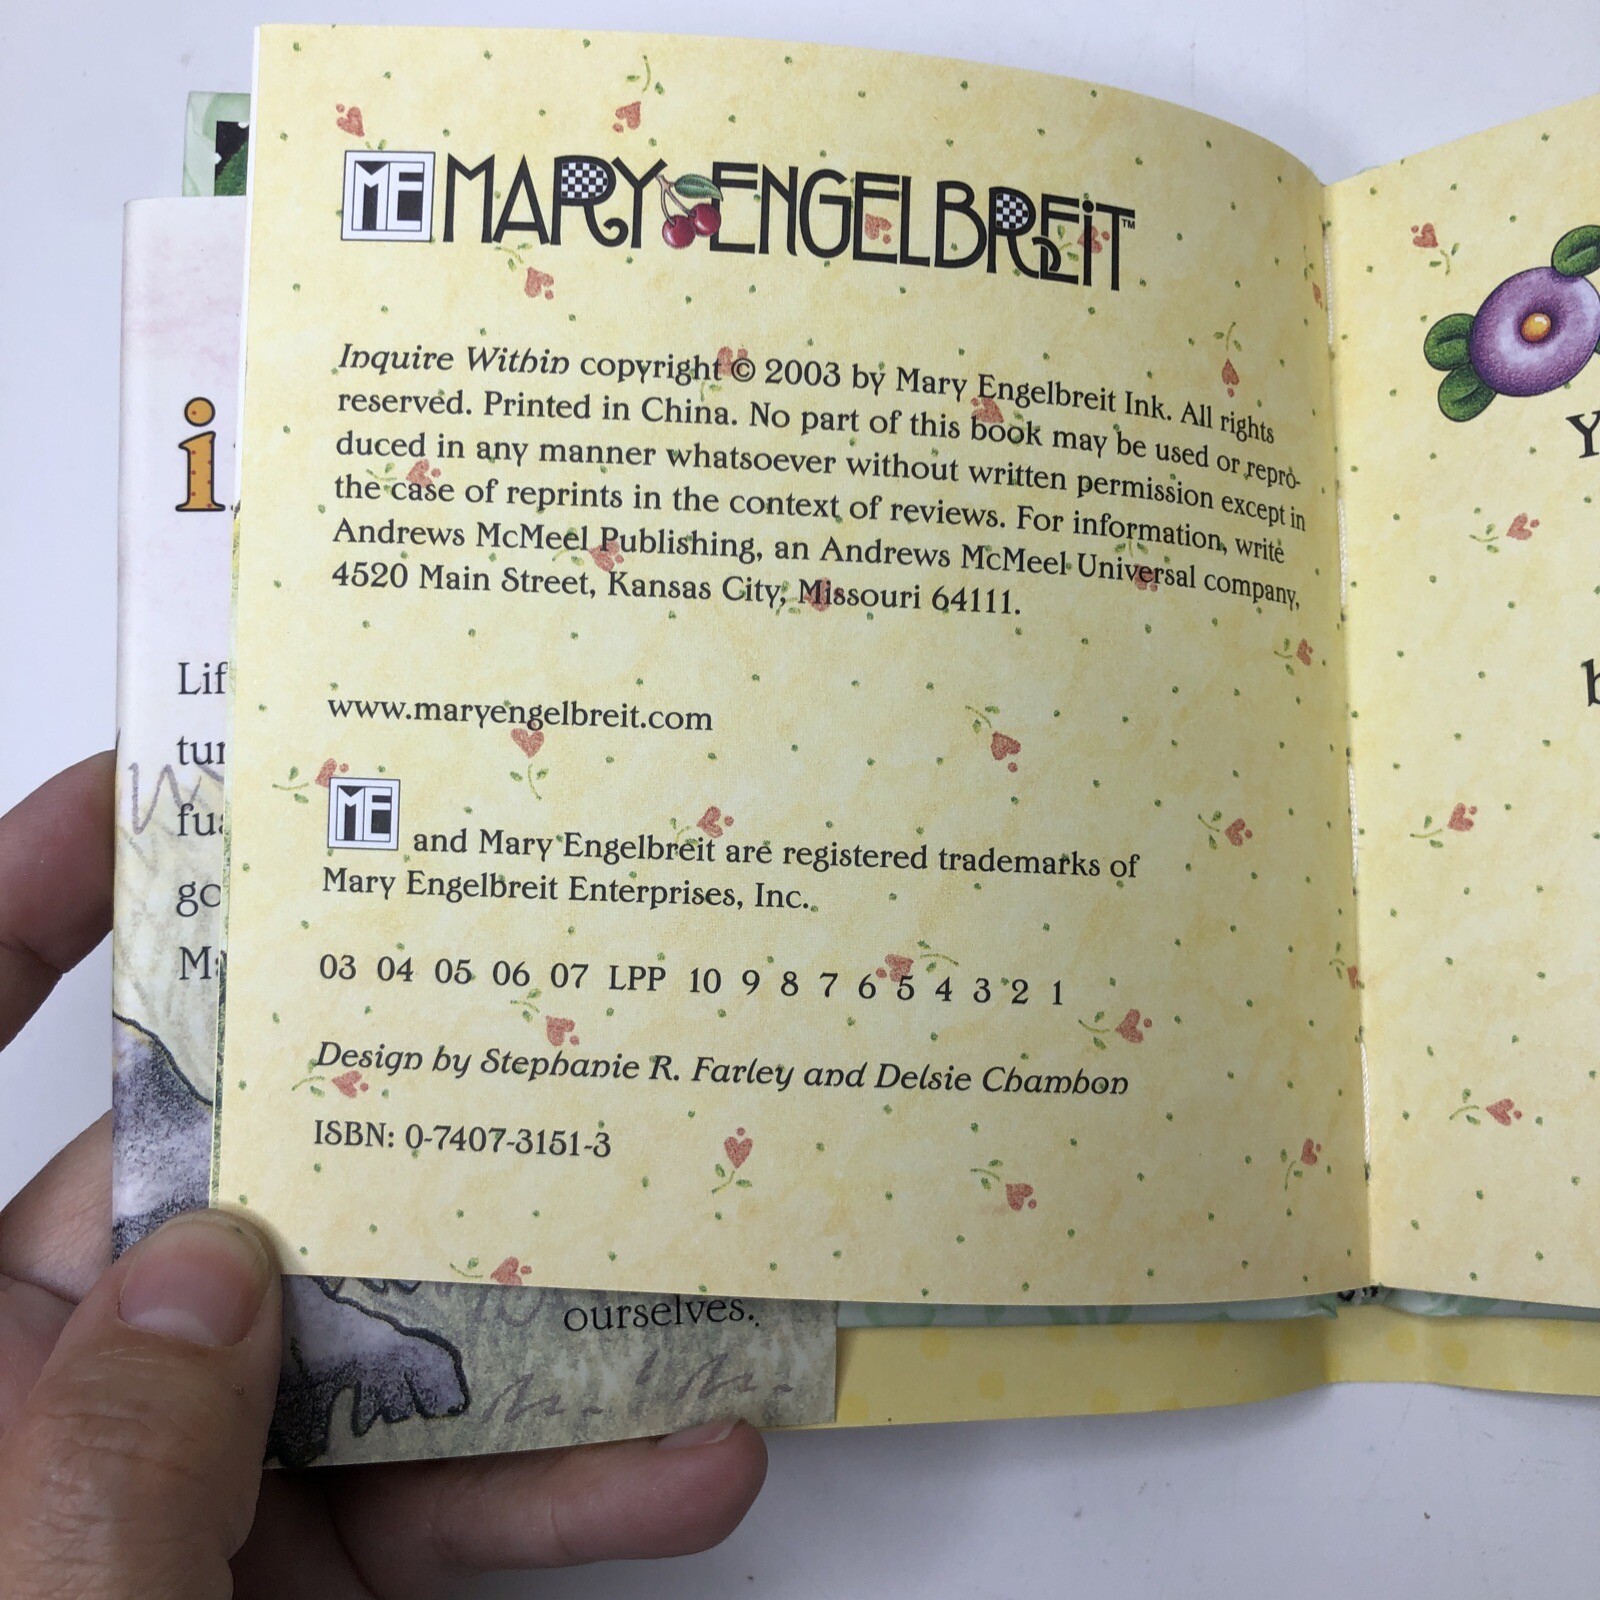 ME MARY ENGELBREIT™
Inquire Within copyright © 2003 by Mary Engelbreit Ink. All rights
reserved. Printed in China. No part of this book may be used or repro-
duced in any manner whatsoever without written permission except in
the case of reprints in the context of reviews. For information, write
Andrews McMeel Publishing, an Andrews McMeel Universal company,
4520 Main Street, Kansas City, Missouri 64111.
www.maryengelbreit.com
ME and Mary Engelbreit are registered trademarks of
Mary Engelbreit Enterprises, Inc.
03 04 05 06 07 LPP 10 9 8 7 6 5 4 3 2 1
Design by Stephanie R. Farley and Delsie Chambon
ISBN: 0-7407-3151-3
ourselves.